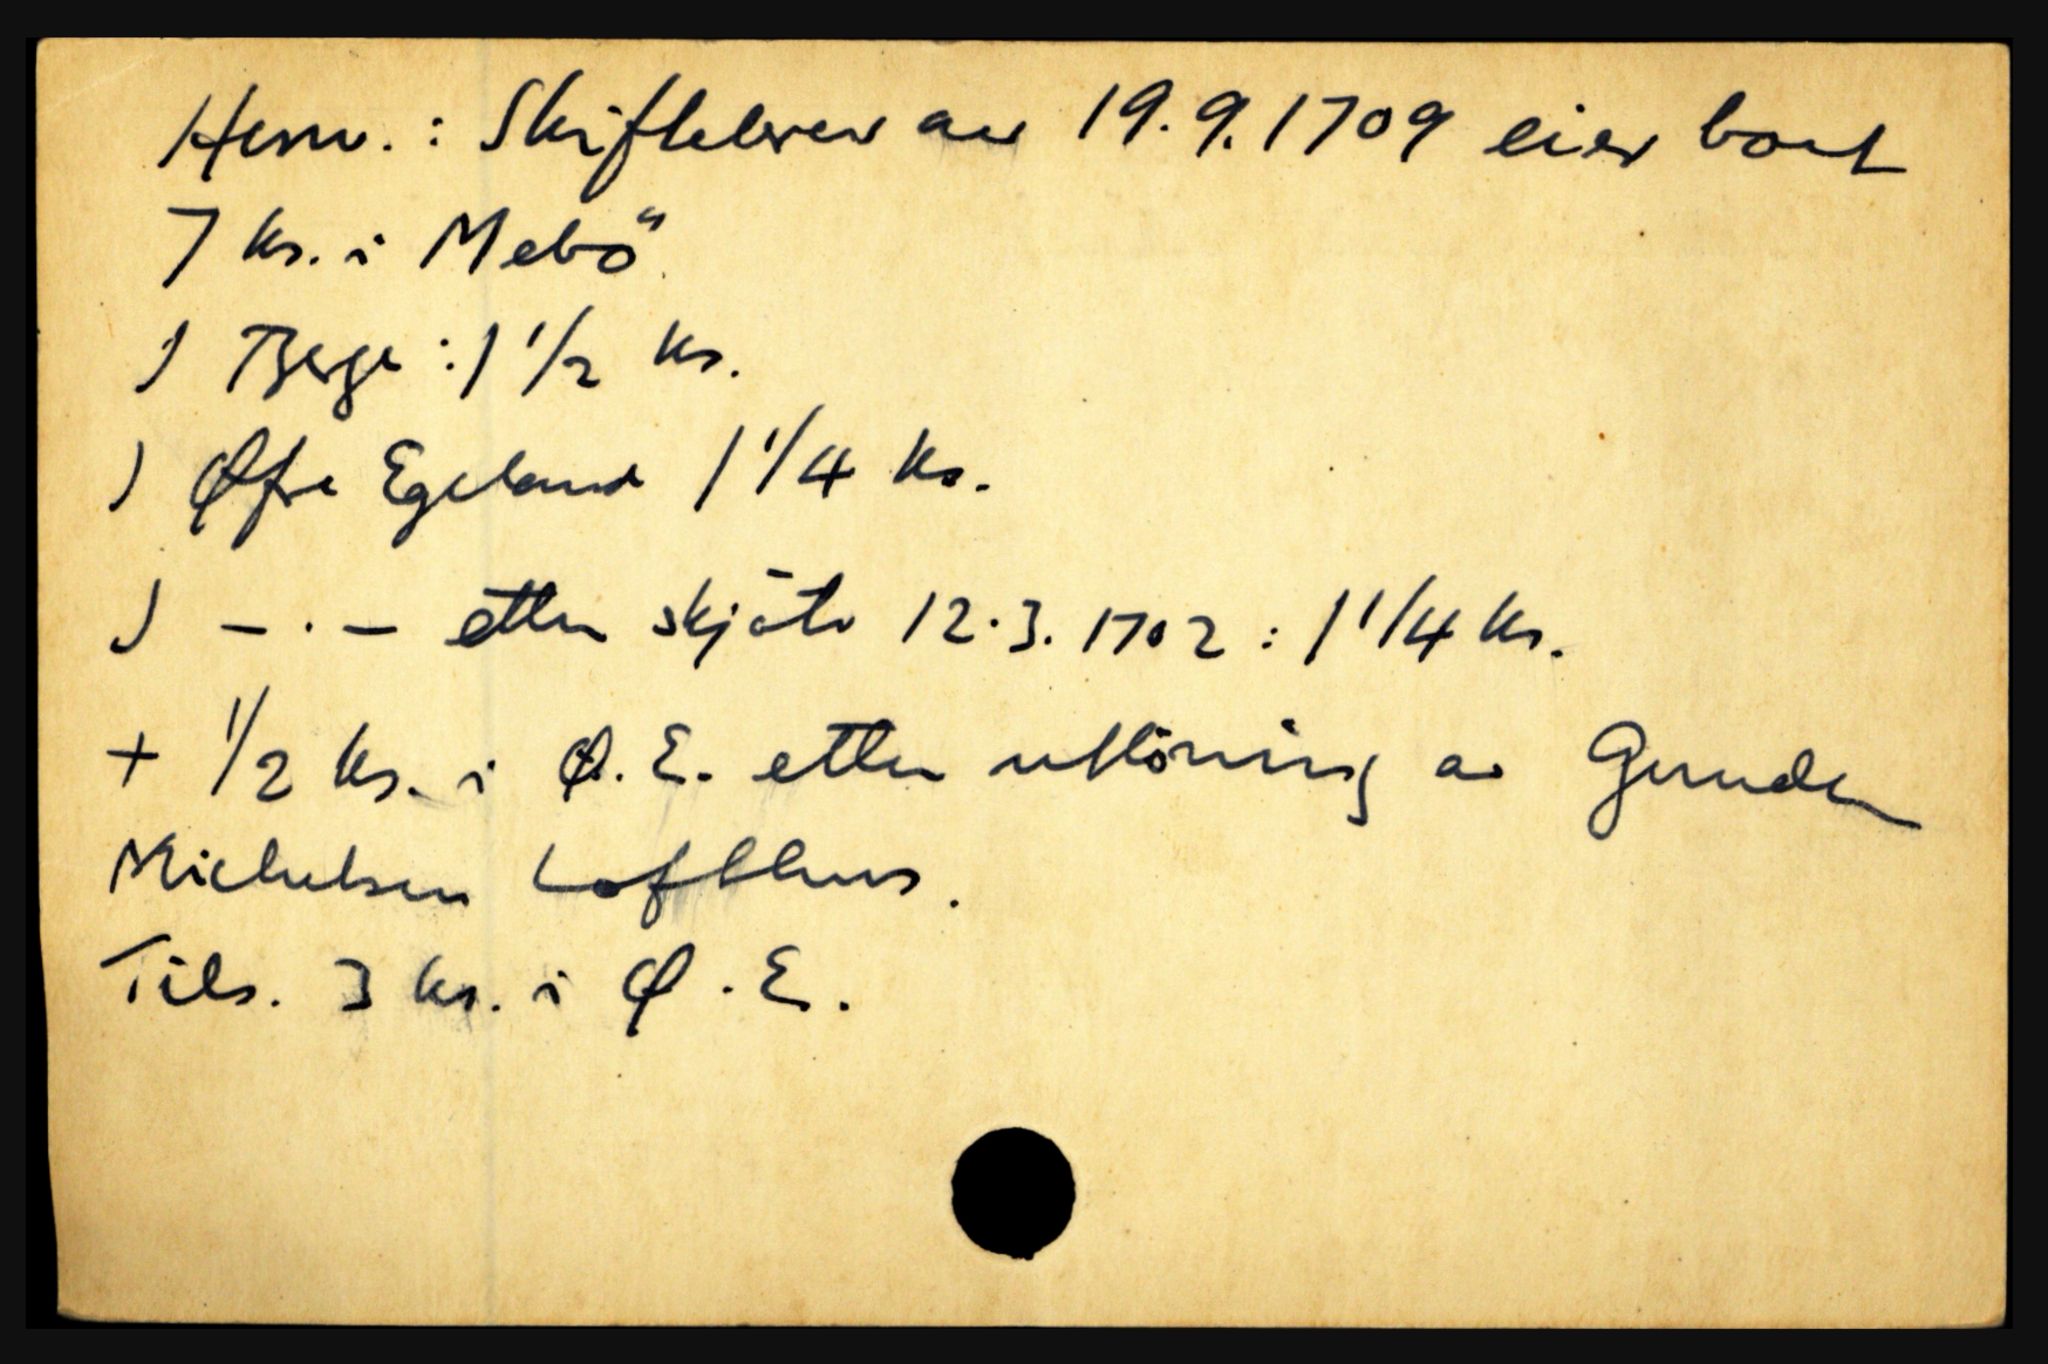 Henv.: Skiftebrev av 19.9.1709 eier boet
7 ks. i Mebö
) Berge : 1 1/2 ks.
) Øfre Egeland 1 1/4 ks.
) - . - etter skjöte 12.3.1702 : 1 1/4 ks.
+ 1/2 ks. i Ø. E. etter utlösning av Gunder
Michelsen Lofthus.
Tils. 3 ks. i Ø. E.